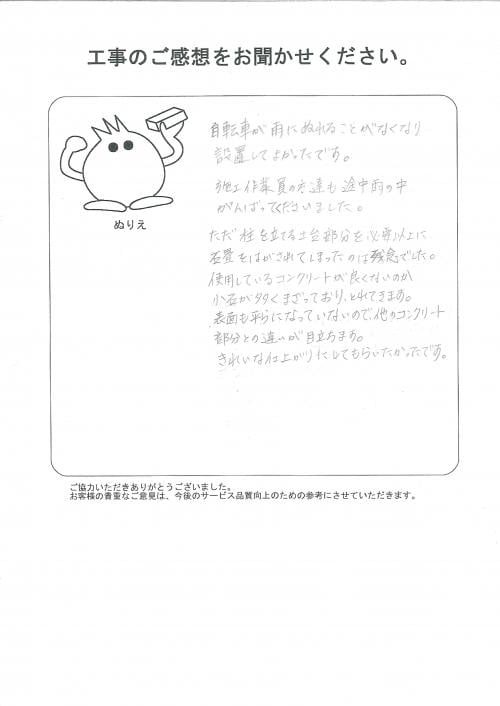 工事のご感想をお聞かせください。
自転車が雨にぬれることがなくなり
設置してよかったです。
施工作業員の方達も途中雨の中
がんばってくださいました。
ただ柱を立てる土台部分を必要以上に
石畳をはがされてしまったのは残念でした。
使用しているコンクリートが良くないのか
小石が多くまざっており、とれてきます。
表面も平らになっていないので、他のコンクリート
部分との違いが目立ちます。
きれいな仕上がりにしてもらいたかったです。
ぬりえ
ご協力いただきありがとうございました。
お客様の貴重なご意見は、今後のサービス品質向上のための参考にさせていただきます。